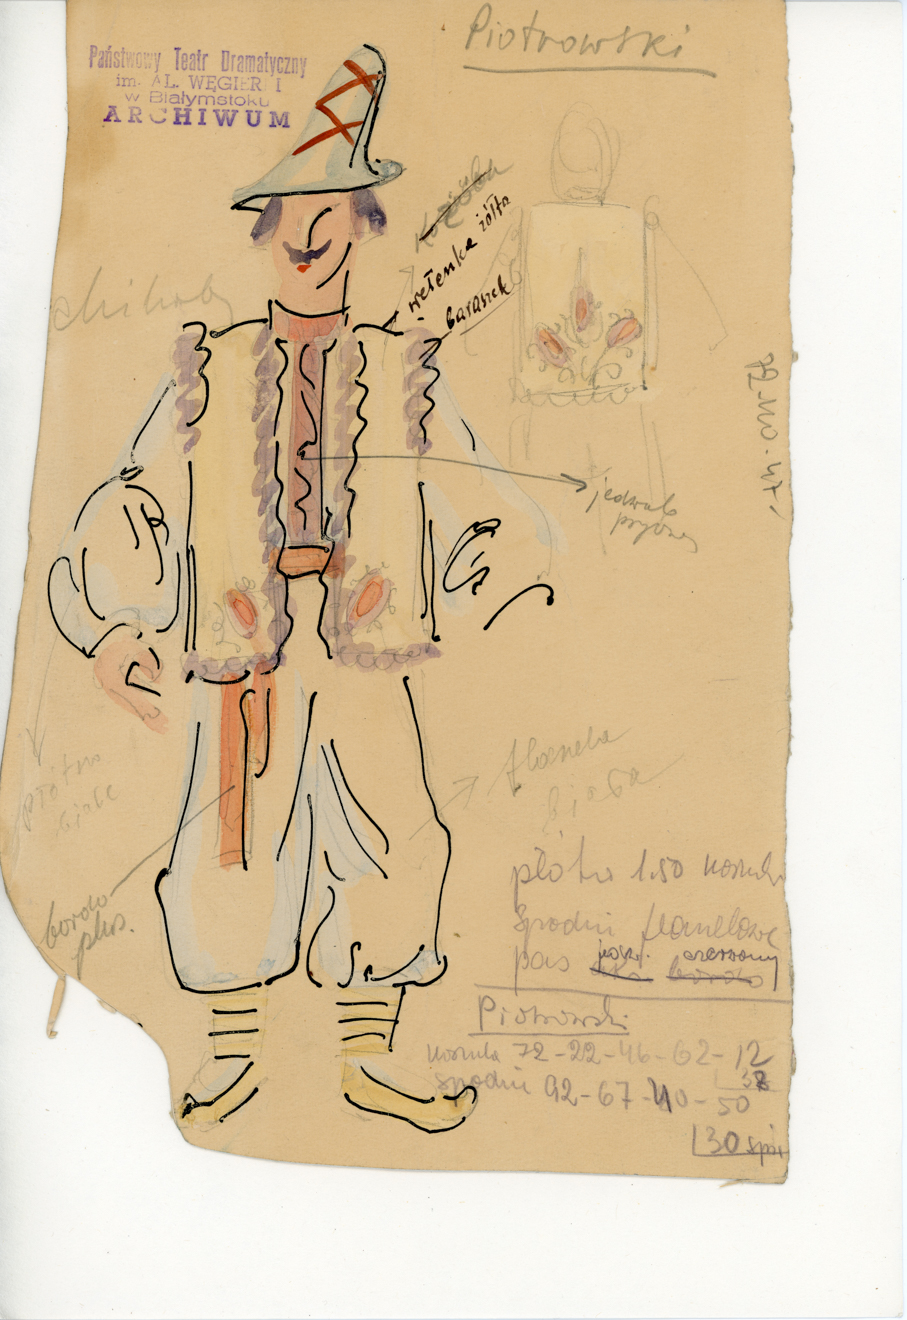 Państwowy Teatr Dramatyczny
im. AL. WĘGIERKI
w Białymstoku
ARCHIWUM
Piotrowski
wełenka żółta
baranek
jedwab
płótno
białe
flanela
biała
bordo
plus.
płótno 1.50 koszula
spodnie flanelowe
pas czerwony
bordo
Piotrowski
koszula 72-22-46-62-12
38
spodnie 92-67-40-50